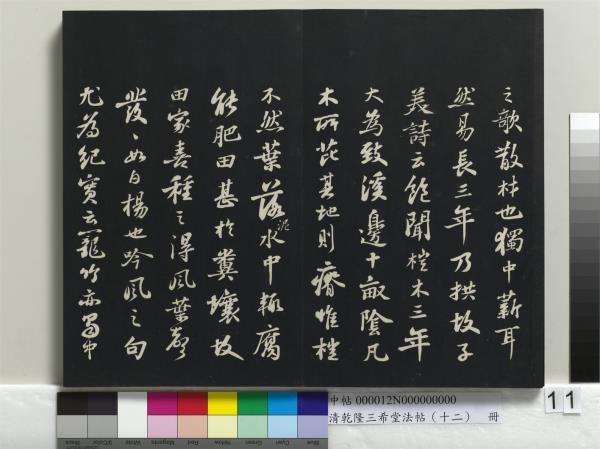 之欹散材也獨中薪耳
然易長三年乃拱故子
美詩云飽聞榿木三年
大為致溪邊十畝陰凡
木所芘其地則瘠惟榿
不然葉落泥水中輙腐
能肥田甚於糞壤故
田家喜種之得風葉聲
發〻如白楊也吟風之句
尤為紀實云籠竹亦蜀中
中帖 000012N000000000
清乾隆三希堂法帖（十二） 冊
11
Black
3/Color
White
Magenta
Red
Yellow
Green
Cyan
Blue